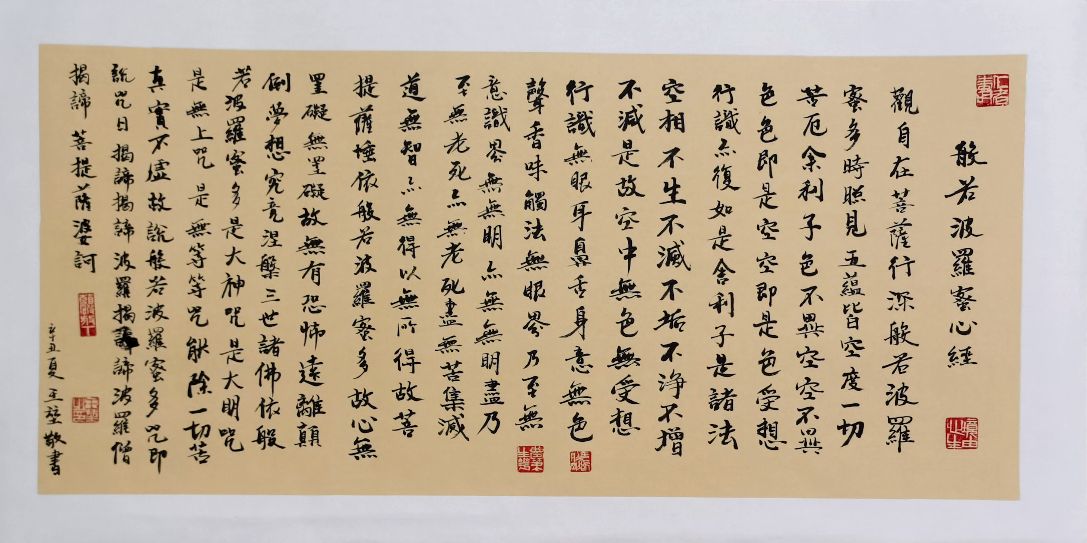 般若波羅蜜心經
觀自在菩薩行深般若波羅
蜜多時照見五蘊皆空度一切
苦厄余利子色不異空空不異
色色即是空空即是色受想
行識亦復如是舍利子是諸法
空相不生不滅不垢不浄不增
不減是故空中無色無受想
行識無眼耳鼻舌身意無色
聲香味觸法無眼界乃至無
意識界無無明亦無無明盡乃
至無老死亦無老死盡無苦集滅
道無智亦無得以無所得故菩
提薩埵依般若波羅蜜多故心無
罣礙無罣礙故無有恐怖遠離顛
倒夢想究竟涅槃三世諸佛依般
若波羅蜜多是大神咒是大明咒
是無上咒是無等等咒能除一切苦
真實不虛故說般若波羅蜜多咒即
說咒曰揭諦揭諦波羅揭諦波羅僧
揭諦菩提薩婆訶
辛丑夏王 敬書